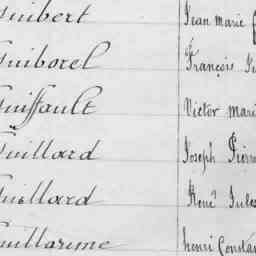 Guibert Jean Marie
Guiborel François
Guiffault Victor Mari
Guillard Joseph Pierre
Guillard René Jules
Guillaume henri Constan